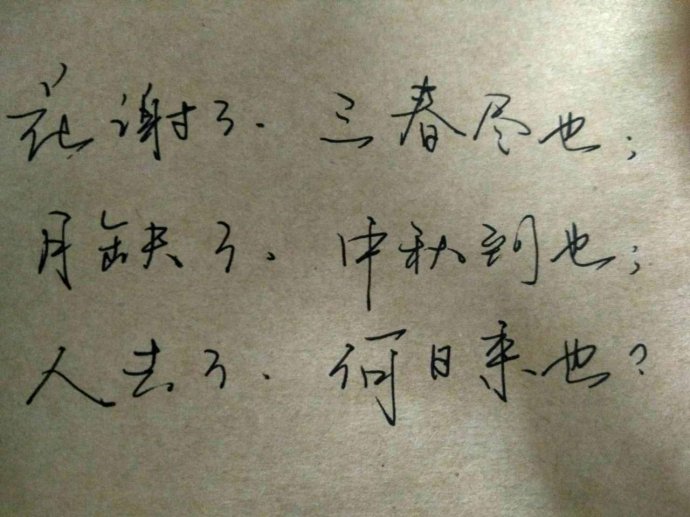 花谢了、三春尽也;
月缺了、中秋到也;
人去了、何日来也?